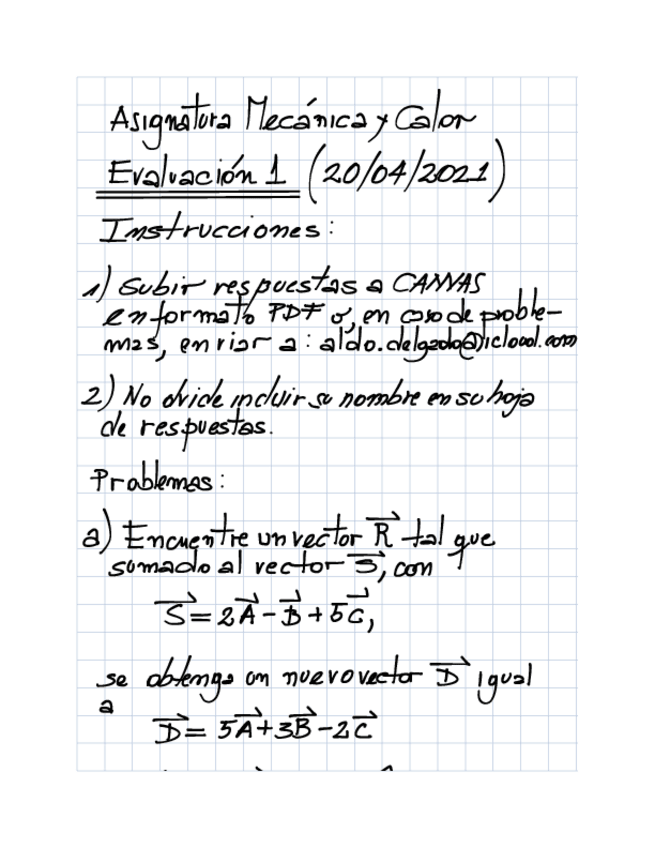 Asignatura Mecánica y Calor
Evaluación 1 (20/04/2021)
Instrucciones:
1) Subir respuestas a CANVAS
en formato PDF o, en caso de proble-
mas, enviar a: aldo.delgado@icloud.com
2) No olvide incluir su nombre en su hoja
de respuestas.
Problemas:
a) Encuentre un vector R⃗ tal que
sumado al vector S⃗, con
S⃗ = 2A⃗ - B⃗ + 5C⃗,
se obtenga un nuevo vector D⃗ igual
a
D⃗ = 5A⃗ + 3B⃗ - 2C⃗